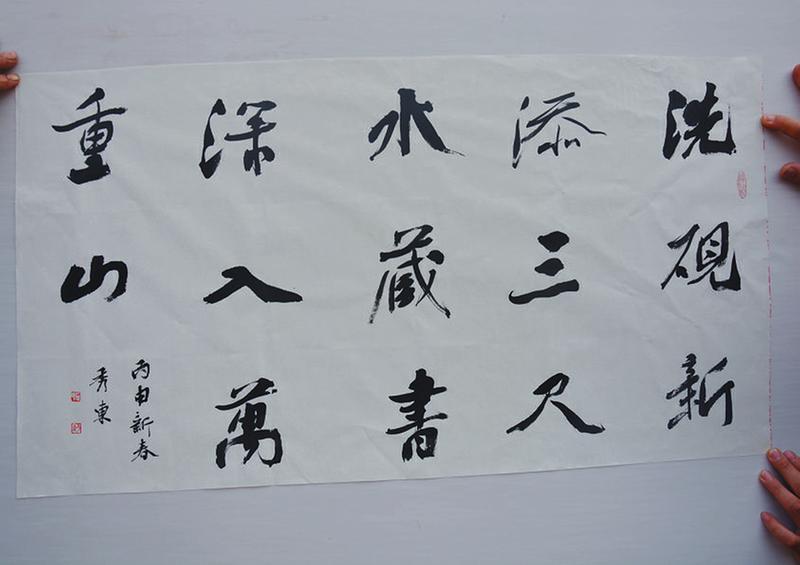 洗硯新
添三尺
水蔵書
深入萬
重山
丙申新春
秀東